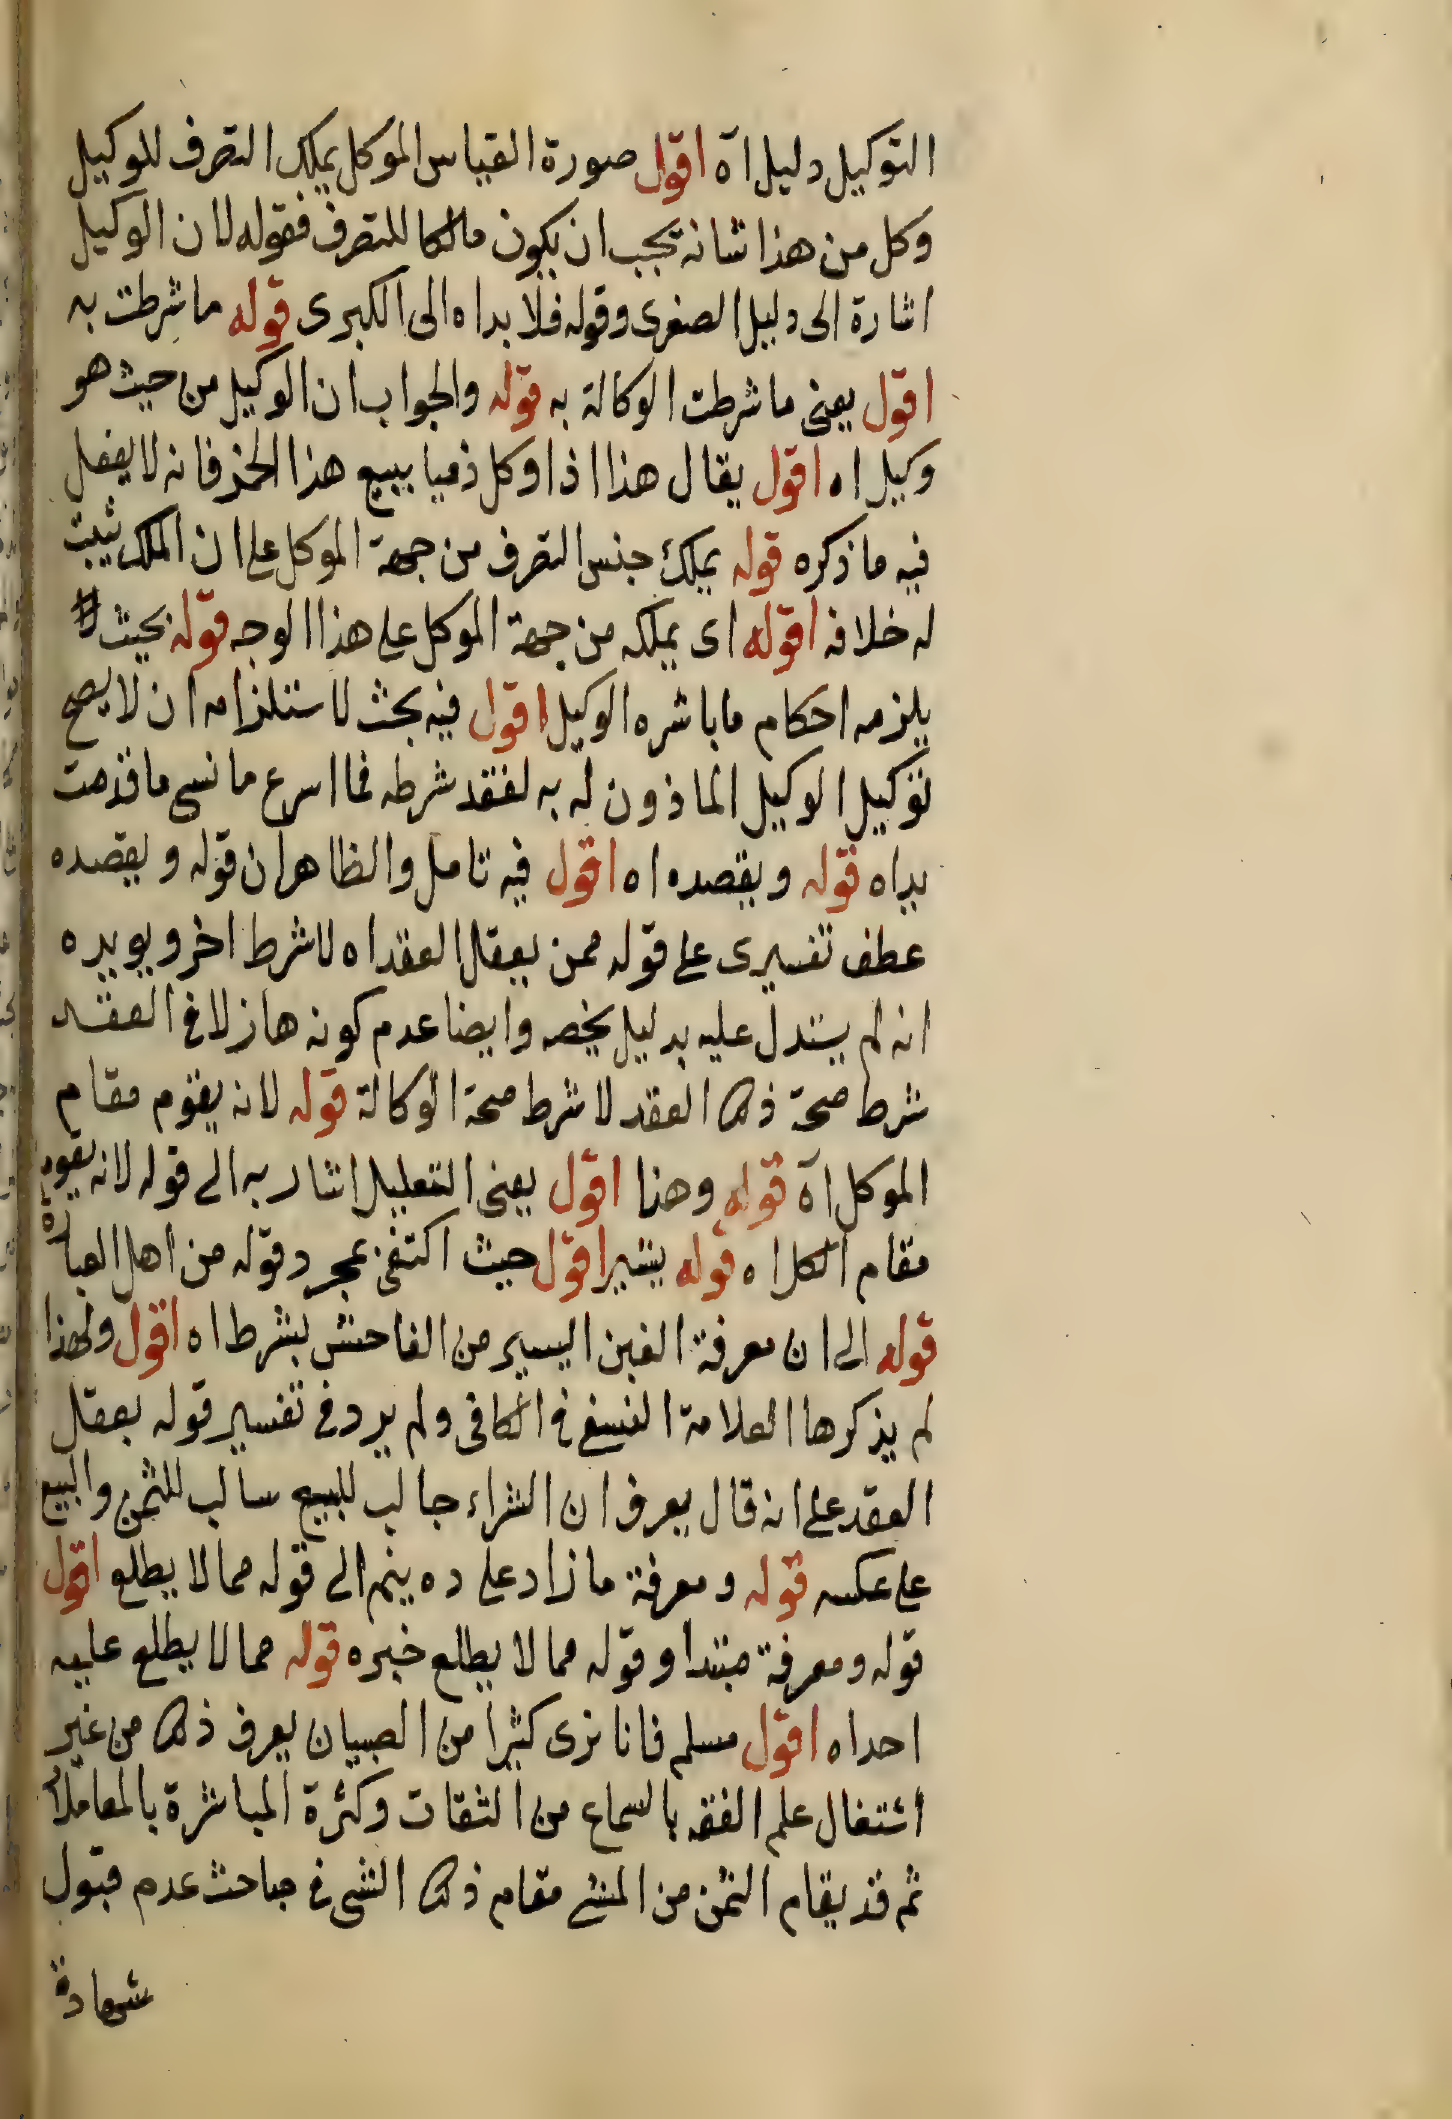 التوكيل دليل اآه اقول صورة القياس الموكل يملك التصرف للوكيل
وكل من هذا شانه يجب ان يكون مالكا للتصرف فقوله لان الوكيل
اشارة الى دليل الصغرى وقوله فلا بد اه الى الكبرى قوله ما شرطت به
اقول يعنى ما شرطت الوكالة به قوله والجواب ان الوكيل من حيث هو
وكيل اه اقول يقال هذا اذا وكل ذميا ببيع هذا الخمر فانه لا يفعل
فيه ما ذكره قوله يملك جنس التصرف من جهة الموكل على ان الملك يثبت
له خلافه اقوله اى يملكه من جهة الموكل على هذا الوجه قوله بحيث
يلزمه احكام ما باشره الوكيل اقول فيه بحث لاستلزامه ان لا يصح
توكيل الوكيل الماذون له به لفقد شرطه فما اسرع ما نسى ما قدمت
يداه قوله ويقصده اه اقول فيه تامل والظاهر ان قوله ويقصده
عطف تفسيرى على قوله ممن يعقل العقد اه لا شرط اخر ويويده
انه لم يستدل عليه بدليل يخصه وايضا عدم كونه هازلا فى العقد
شرط صحة ذلك العقد لا شرط صحة الوكالة قوله لانه يقوم مقام
الموكل اآه قوله وهذا اقول يعنى التعليل اشار به الى قوله لانه يقوم
مقام الكل اه قوله يشير اقول حيث اكتفى بمجرد قوله من اهل العبارة
قوله الى ان معرفة الغبن اليسير من الفاحش بشرط اه اقول ولهذا
لم يذكرها العلامة النسفى فى الكافى ولم يرد فى تفسير قوله بعقل
العقد على انه قال يعرف ان الشراء جالب للبيع سالب للثمن والبيع
على عكسه قوله ومعرفة ما زاد على ده ينم الى قوله مما لا يطلع اقول
قوله ومعرفة مبتدا وقوله مما لا يطلع خبره قوله مما لا يطلع عليه
احد اه اقول مسلم فانا نرى كثرا من الصبيان يعرف ذلك من غير
اشتغال علم الفقه بالسماع من الثقات وكثرة المباشرة بالمعاملات
ثم قد يقام الثمن من المشى مقام ذلك الشى فى مباحث عدم قبول
شهادة